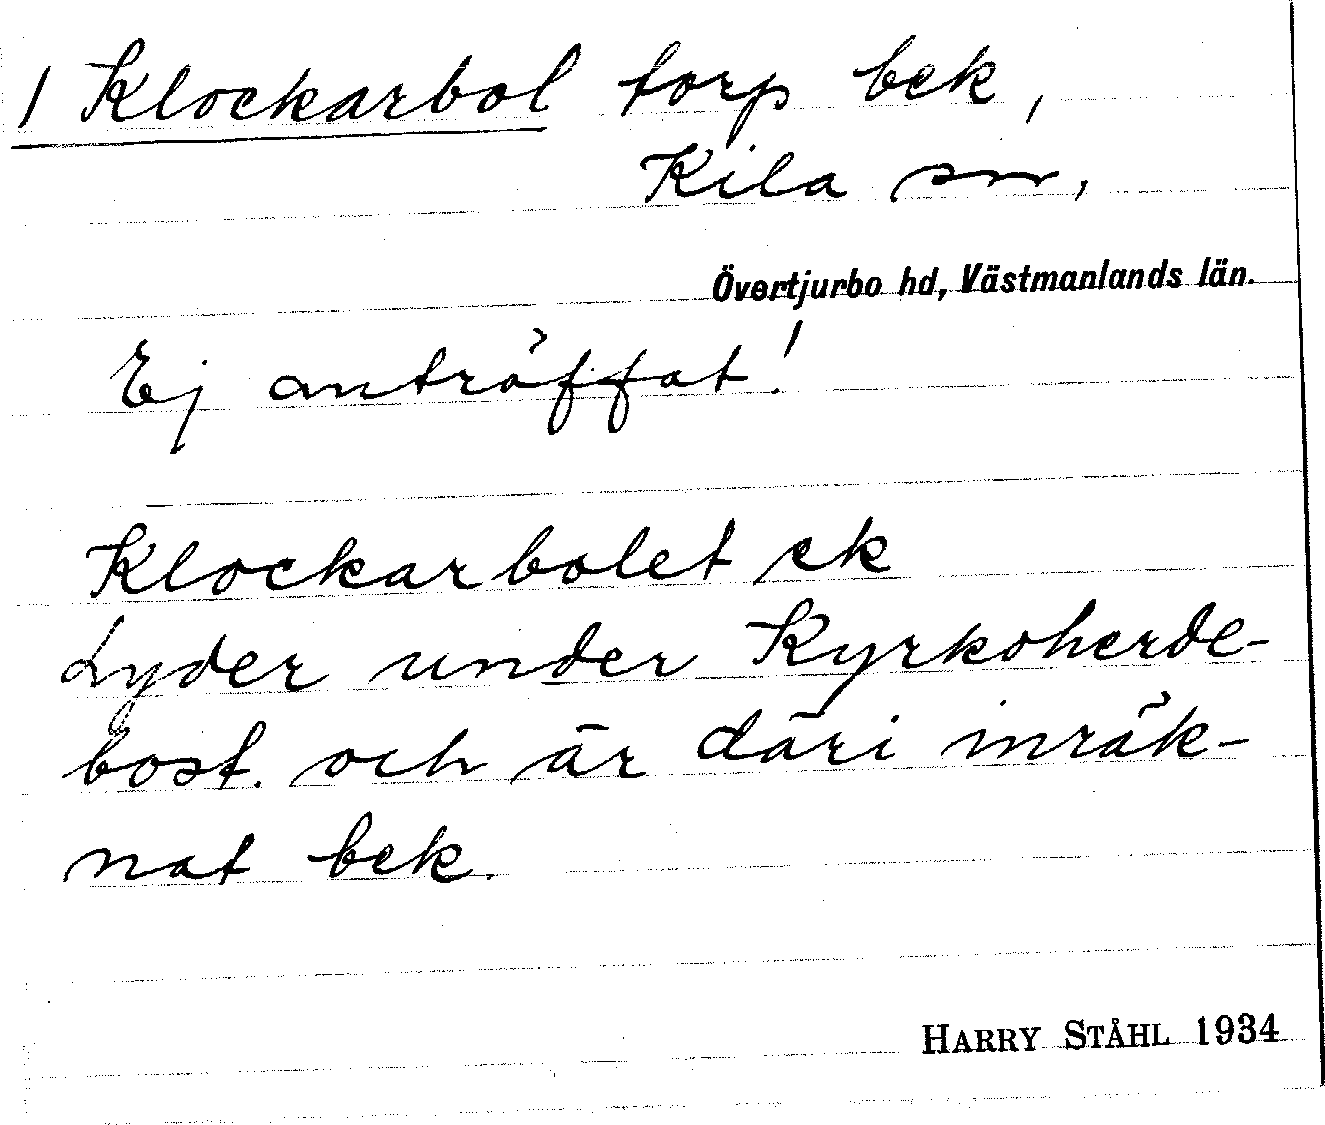 1 Klockarbol torp bek,
Kila sn,
Övertjurbo hd, Västmanlands län.
Ej anträffat!
Klockarbolet ek
Lyder under Kyrkoherde-
bost. och är däri inräk-
nat bek.
HARRY STÅHL 1934